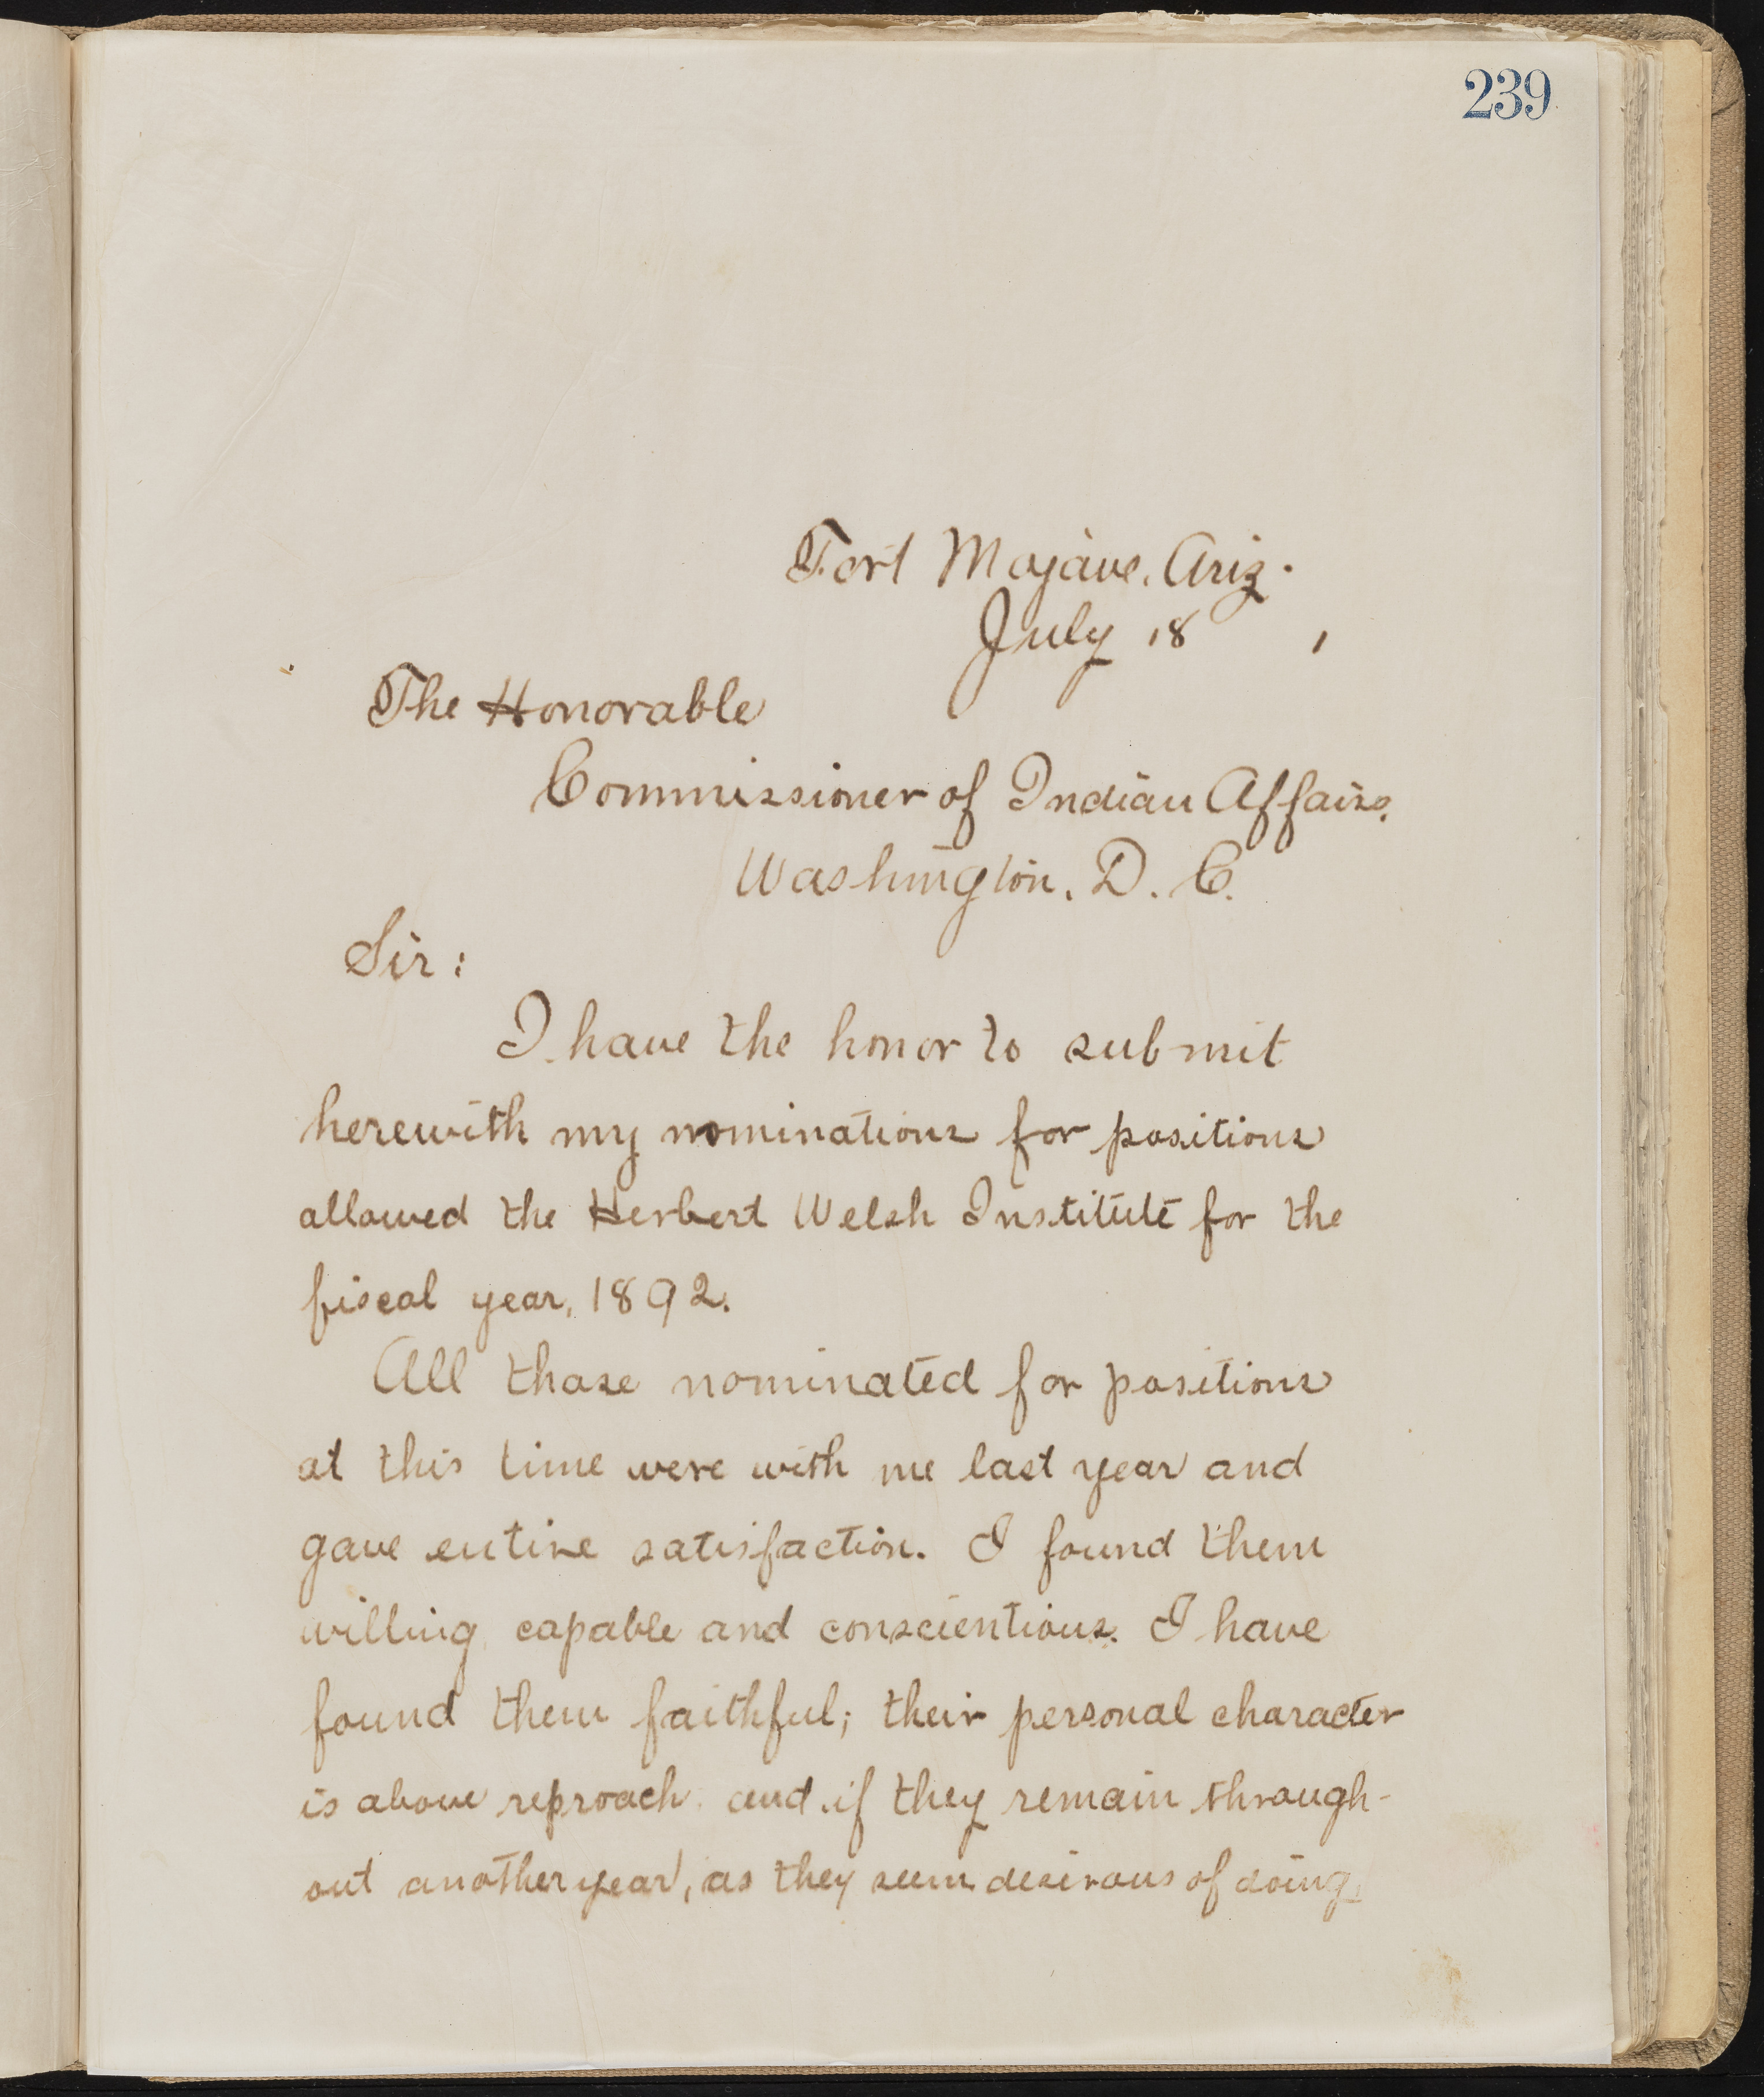 239
Fort Mojave, Ariz.
July 18 1
The Honorable
Commissioner of Indian Affairs,
Washington, D. C.
Sir:
I have the honor to submit
herewith my nominations for positions
allowed the Herbert Welsh Institute for the
fiscal year, 1892.
All those nominated for positions
at this time were with me last year and
gave entire satisfaction. I found them
willing, capable and conscientious. I have
found them faithful; their personal character
is above reproach and if they remain through-
out another year, as they seem desirous of doing,